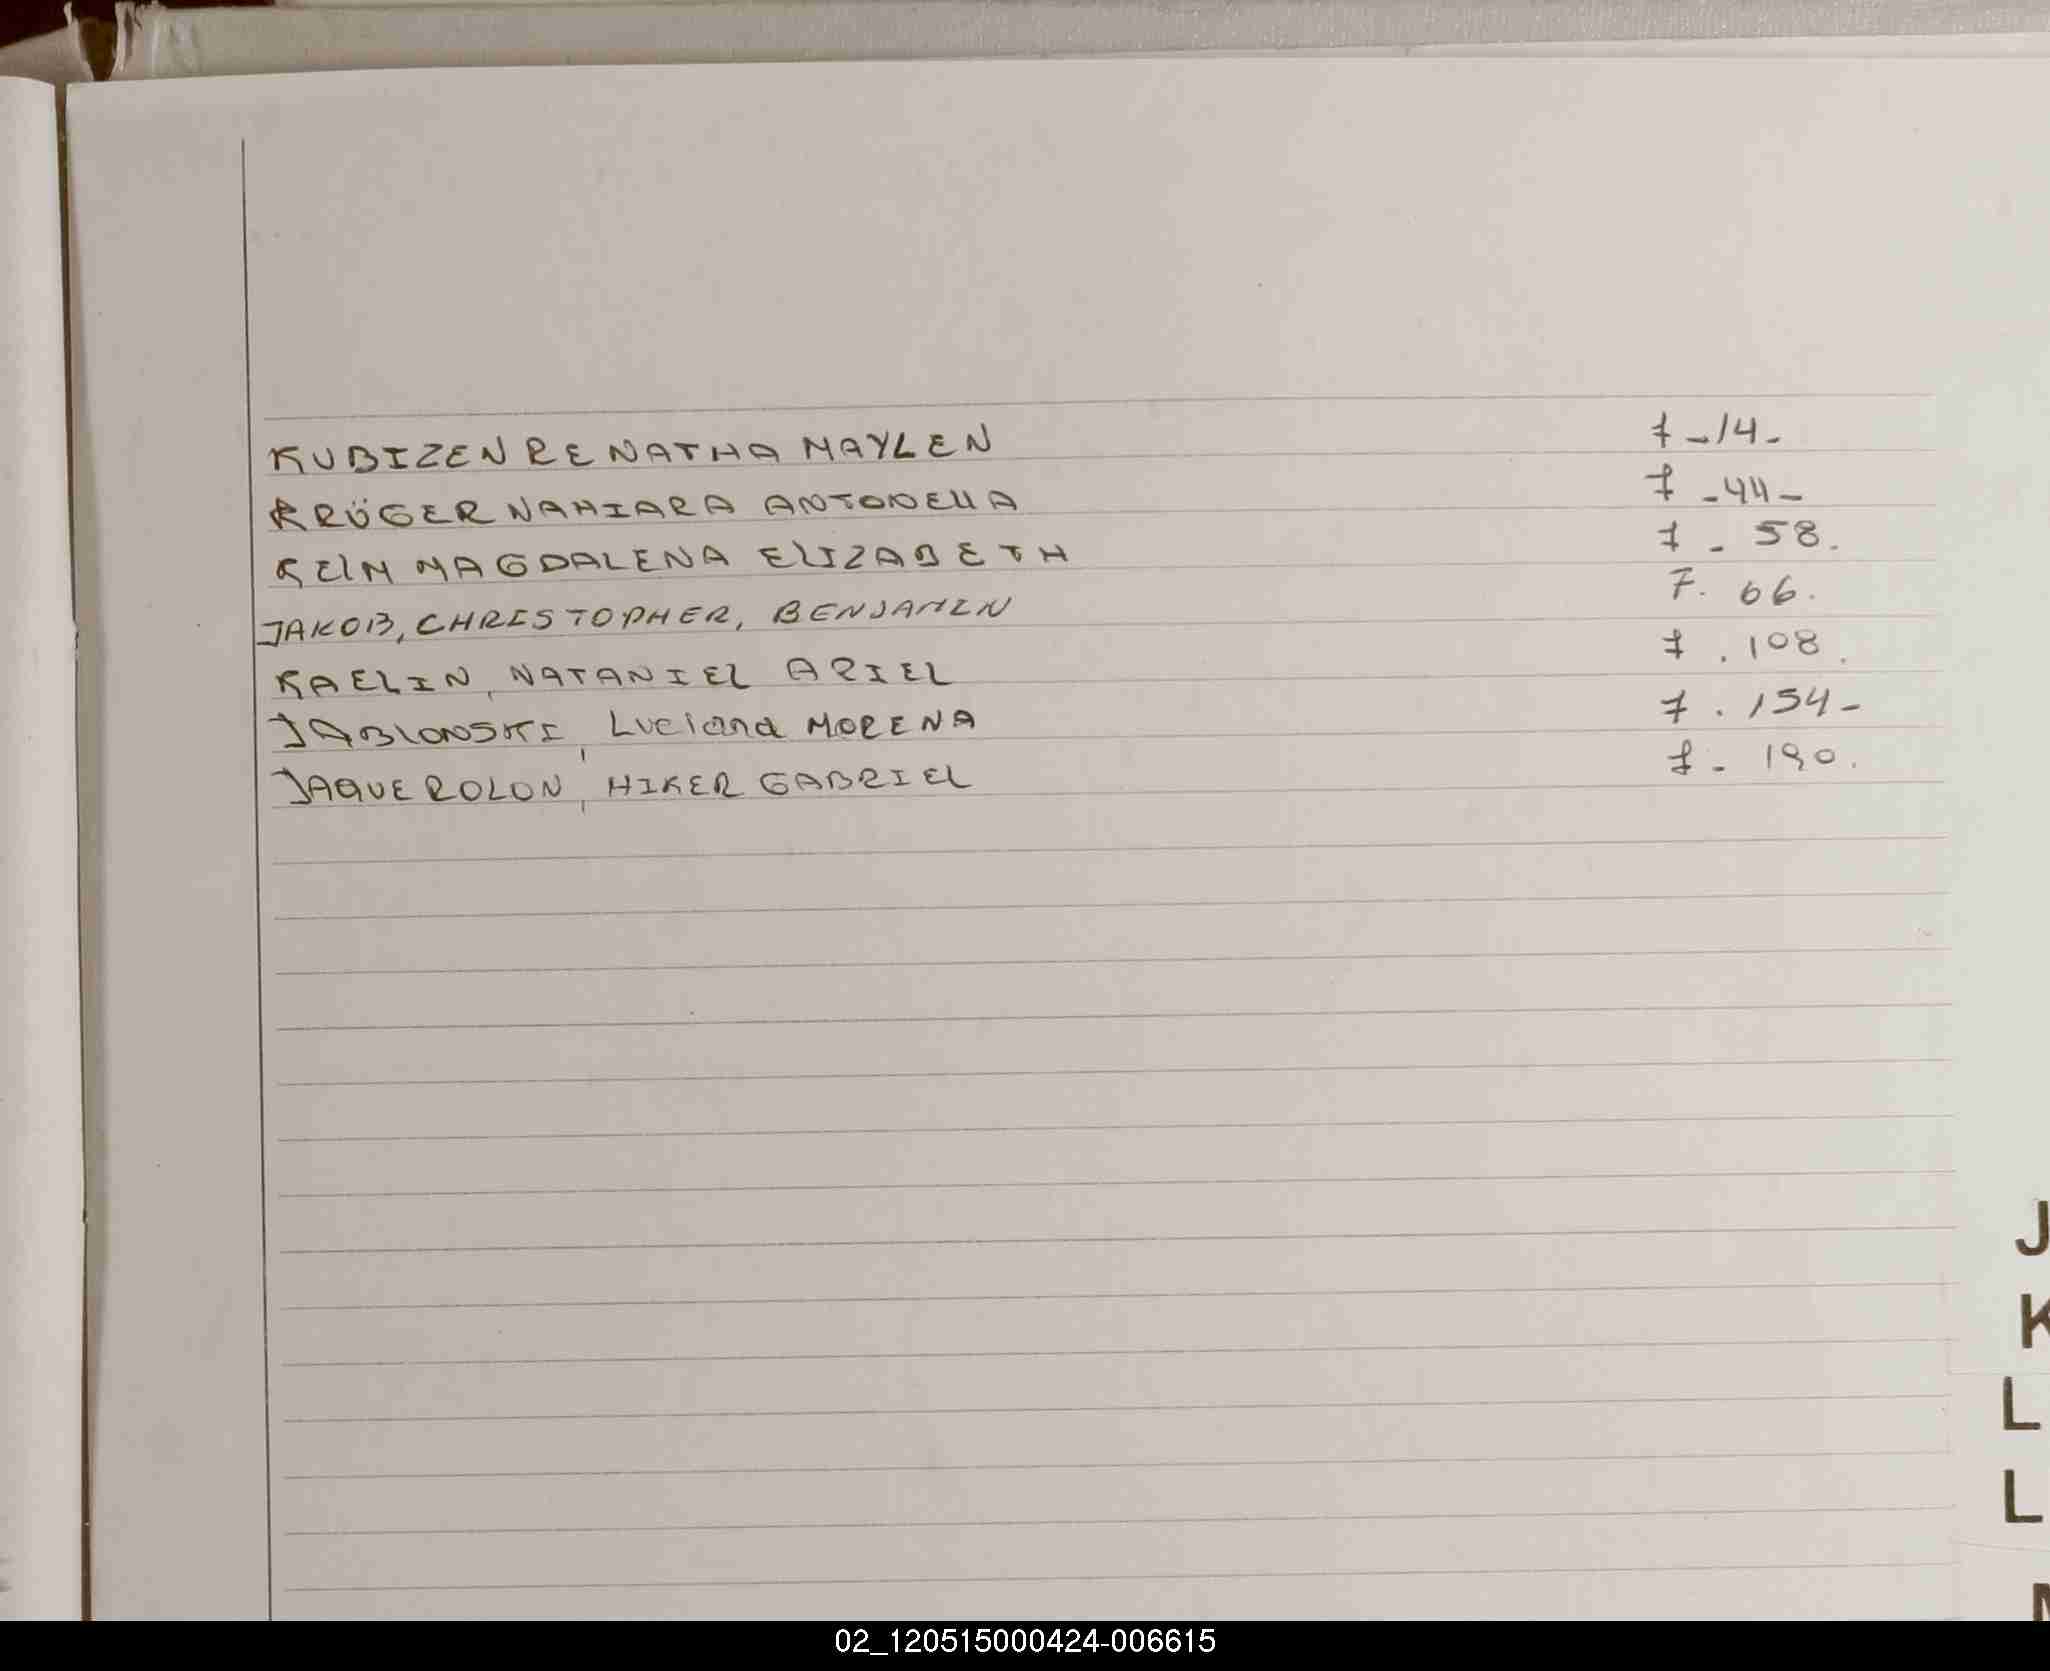 KUBIZEN RENATHA MAYLEN 7-14-
KRÜGER NAHIARA ANTONELLA 7-44-
KEIM MAGDALENA ELIZABETH 7-58.
JAKOB, CHRISTOPHER, BENJAMIN 7.66.
KAELIN, NATANIEL ARIEL 7.108.
JABLONSKI, Luciana MORENA 7.154-
JAQUEROLON, HIKER GABRIEL 7-190.
J
K
L
L
02_120515000424-006615